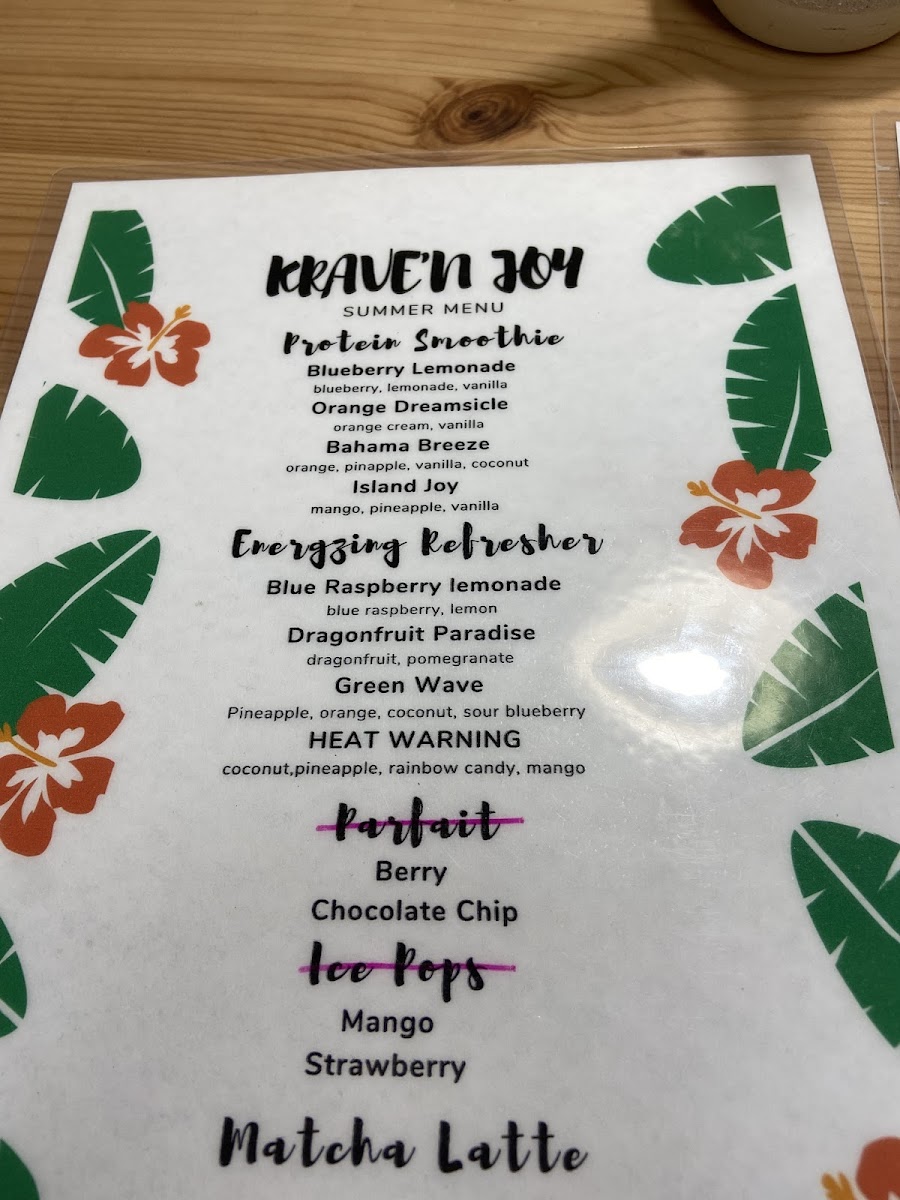 KRAVE'N JOY
SUMMER MENU
Protein Smoothie
Blueberry Lemonade
blueberry, lemonade, vanilla
Orange Dreamsicle
orange cream, vanilla
Bahama Breeze
orange, pinapple, vanilla, coconut
Island Joy
mango, pineapple, vanilla
Energzing Refresher
Blue Raspberry lemonade
blue raspberry, lemon
Dragonfruit Paradise
dragonfruit, pomegranate
Green Wave
Pineapple, orange, coconut, sour blueberry
HEAT WARNING
coconut,pineapple, rainbow candy, mango
Parfait
Berry
Chocolate Chip
Ice Pops
Mango
Strawberry
Matcha Latte